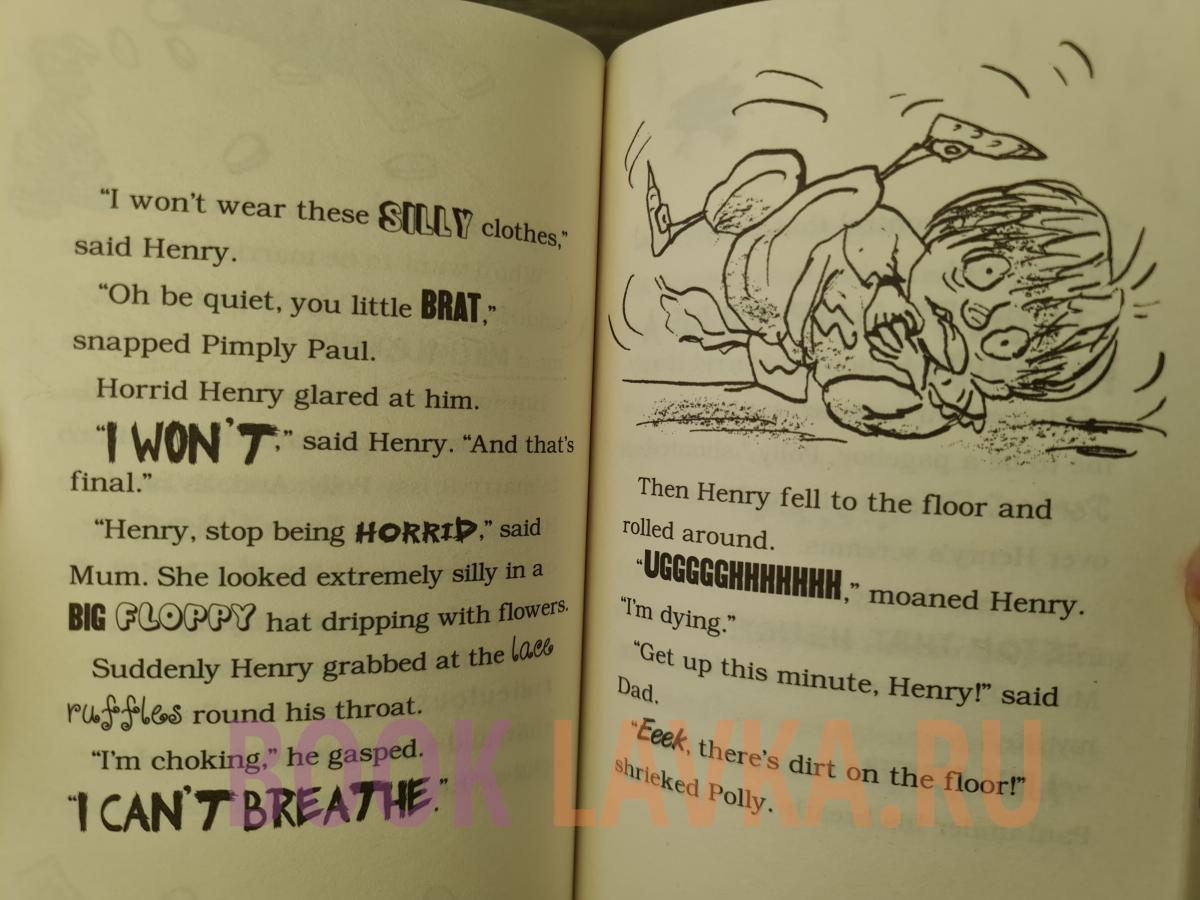 “I won’t wear these SILLY clothes,”
said Henry.
“Oh be quiet, you little BRAT,”
snapped Pimply Paul.
Horrid Henry glared at him.
“I WON’T,” said Henry. “And that’s
final.”
“Henry, stop being HORRID,” said
Mum. She looked extremely silly in a
BIG FLOPPY hat dripping with flowers.
Suddenly Henry grabbed at the lace
ruffles round his throat.
“I’m choking,” he gasped.
“I CAN’T BREATHE.”
Then Henry fell to the floor and
rolled around.
“UGGGGGHHHHHHH,” moaned Henry.
“I’m dying.”
“Get up this minute, Henry!” said
Dad.
“Eeek, there’s dirt on the floor!”
shrieked Polly.
BOOK LAVKA.RU